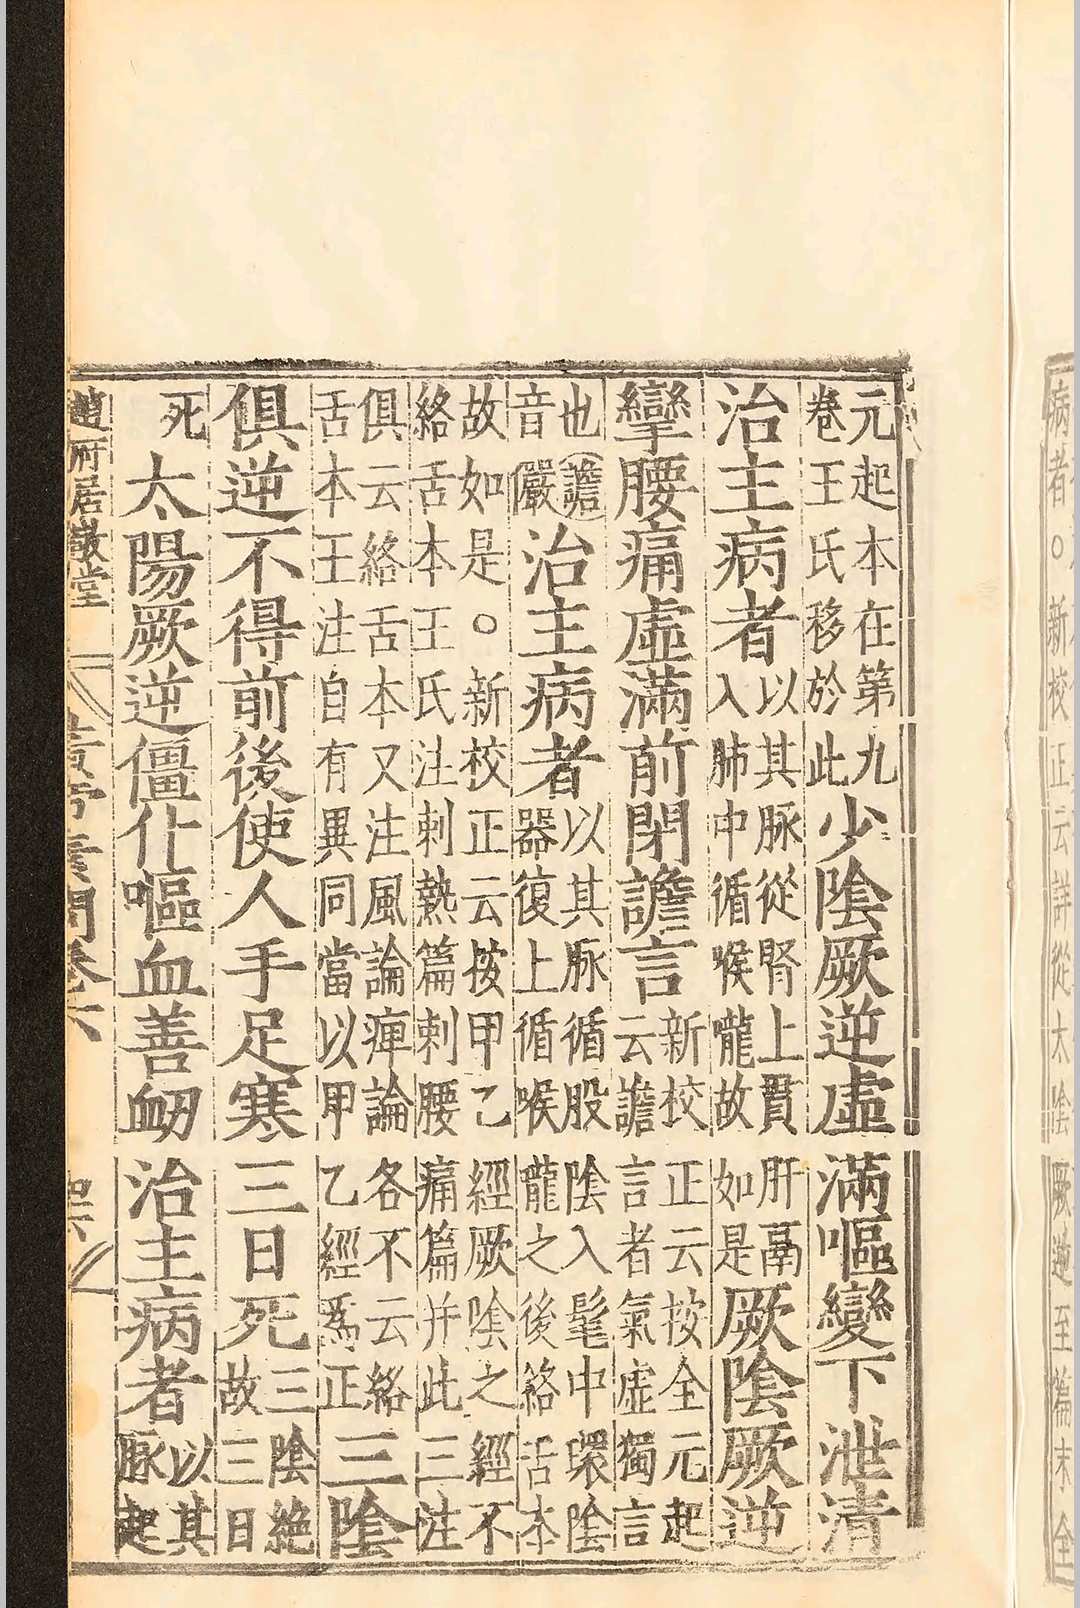 病者○新校正云詳從太陰厥逆至篇末全
元起本在第九
卷王氏移於此
少陰厥逆虛滿嘔變下泄清
治主病者
以其脉從腎上貫肝鬲
入肺中循喉嚨故如是
厥陰厥逆
攣腰痛虛滿前閉譫言
新校正云按全元起
云譫言者氣虛獨言
也譫
音嚴
治主病者
以其脉循股陰入髦中環陰
器復上循喉嚨之後絡舌本
故如是○新校正云按甲乙經厥陰之經不
絡舌本王氏注刺熱篇刺腰痛篇并此三注
俱云絡舌本又注風論痺論各不云絡
舌本王注自有異同當以甲乙經爲正
三陰
俱逆不得前後使人手足寒三日死
三陰絕
故三日
死
太陽厥逆僵仆嘔血善衄治主病者
以其
脉起
趙府居敬堂
黃帝素問卷六